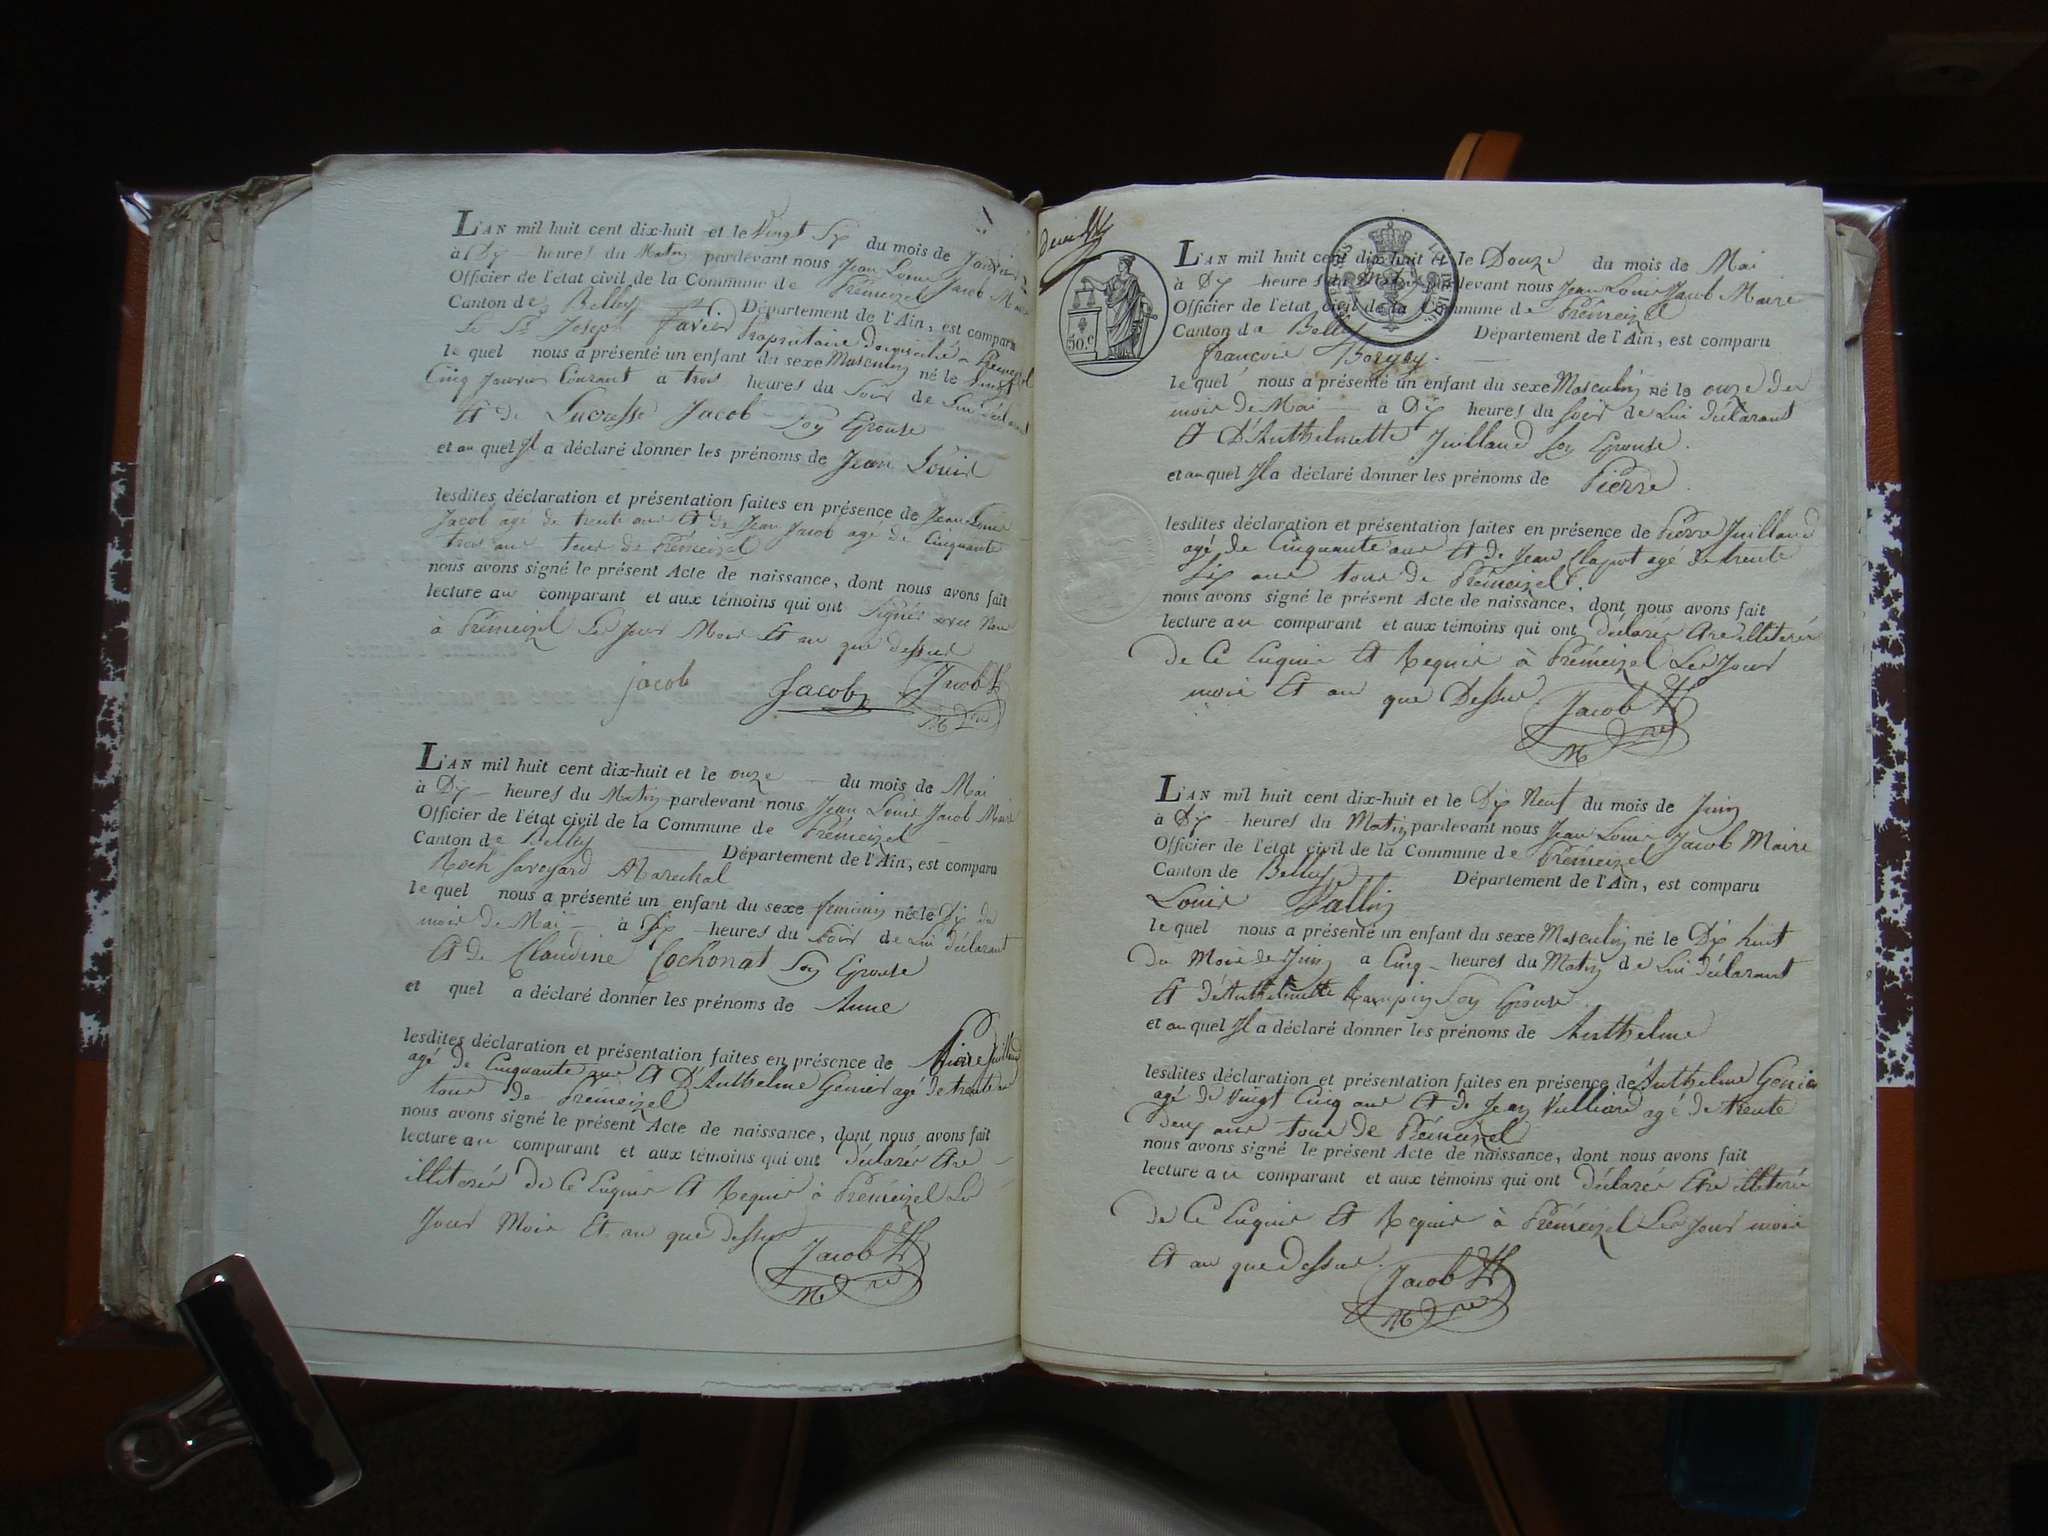 L'AN mil huit cent dix-huit et le Vingt Six du mois de Janvier
à Dix heures du Matin pardevant nous Jean Louis Jacob Maire
Officier de l'état civil de la Commune de Prémeizel
Canton de Belley Département de l'Ain, est comparu
le Sr Joseph Favier Propriétaire domicilié a Prémeizel
le quel nous a présenté un enfant du sexe Masculin né le Vingt
Cinq Janvier Courant a trois heures du Soir de Lui déclarant
Et de Lucresse Jacob Son Epouse
et au quel Il a déclaré donner les prénoms de Jean Louis
lesdites déclaration et présentation faites en présence de Jean Louis
Jacob agé de trente ans Et de Jean Jacob agé de Cinquante
trois ans tous de Prémeizel
nous avons signé le présent Acte de naissance, dont nous avons fait
lecture au comparant et aux témoins qui ont Signés avec Nous
à Prémeizel Les Jour Mois Et an que dessus
jacob Jacob Jacob
M re
L'AN mil huit cent dix-huit et le onze du mois de Mai
à Dix heures du Matin pardevant nous Jean Louis Jacob Maire
Officier de l'état civil de la Commune de Prémeizel
Canton de Belley Département de l'Ain, est comparu
Roch Savoyard Marechal
le quel nous a présenté un enfant du sexe feminin née le Dix du
mois de Mai à Dix heures du Soir de Lui déclarant
Et de Claudine Cochonat Son Epouse
et quel a déclaré donner les prénoms de Anne
lesdites déclaration et présentation faites en présence de Pierre Juilland
agé de Cinquante ans Et D'Anthelme Genier agé de trente ans
tous de Prémeizel
nous avons signé le présent Acte de naissance, dont nous avons fait
lecture au comparant et aux témoins qui ont déclarés être
illiterés de Ce Enquis Et Requis à Prémeizel Les
Jour Mois Et an que dessus
Jacob
M re
50.c
L'AN mil huit cent dix-huit et le Douze du mois de Mai
à Dix heures du Matin pardevant nous Jean Louis Jacob Maire
Officier de l'état civil de la Commune de Prémeizel
Canton de Belley Département de l'Ain, est comparu
françois Borgey
le quel nous a présenté un enfant du sexe Masculin né le onze du
mois de Mai a Dix heures du Soir de Lui déclarant
Et D'Anthelmette Juilland Son Epouse
et au quel Il a déclaré donner les prénoms de Pierre
lesdites déclaration et présentation faites en présence de Pierre Juilland
agé de Cinquante ans Et de Jean Clapot agé de trente
Six ans tous de Prémeizel
nous avons signé le présent Acte de naissance, dont nous avons fait
lecture au comparant et aux témoins qui ont déclarés être illiterés
de Ce Enquis Et Requis à Prémeizel Les Jour
mois Et an que Dessus Jacob
M re
L'AN mil huit cent dix-huit et le Dix Neuf du mois de Juin
à Dix heures du Matin pardevant nous Jean Louis Jacob Maire
Officier de l'état civil de la Commune de Prémeizel
Canton de Belley Département de l'Ain, est comparu
Louis Vallin
le quel nous a présenté un enfant du sexe Masculin né le Dix huit
du Mois de Juin a Cinq heures du Matin de Lui déclarant
Et d'Anthelmette Rampin Son Epouse
et au quel Il a déclaré donner les prénoms de Anthelme
lesdites déclaration et présentation faites en présence de Anthelme Genier
agé de Vingt Cinq ans Et de Jean Vulliard agé de trente
deux ans tous de Prémeizel
nous avons signé le présent Acte de naissance, dont nous avons fait
lecture au comparant et aux témoins qui ont déclarés être illiterés
de Ce Enquis Et Requis à Prémeizel Les Jour mois
Et an que dessus
Jacob
M re